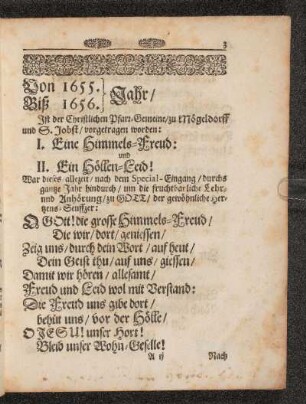 3
Von 1655.
Biß 1656. } Jahr/
Ist der Christlichen Pfarr-Gemeine/zu Mögeldorff
und S. Jobst/ vorgetragen worden:
I. Eine Himmels-Freud:
und
II. Ein Höllen-Leid!
War dieses allezeit/ nach dem Special-Eingang/ durchs
gantze Jahr hindurch/ um die fruchtbarliche Lehr,
und Anhörung/ zu GOTT/ der gewöhnliche Her-
tzens-Seuffzer:
O GOtt! die grosse Himmels-Freud/
Die wir/dort/ geniessen/
Zeig uns/durch dein Wort/ auf heut/
Dein Geist thu/auf uns/ giessen/
Damit wir hören/ allesamt/
Freud und Leid wol mit Verstand:
Die Freud uns gibe dort/
behüt uns/ vor der Hölle/
O JESU! unser Hort!
Bleib unser Wohn-Geselle!
A ij Nach